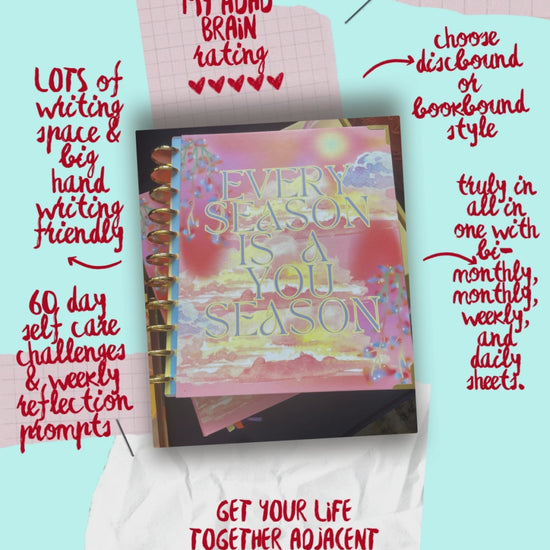 MY ADHD
BRAIN
rating
LOTS of
writing
space &
big
hand
writing
friendly
60 day
self care
challenges
& weekly
reflection
prompts
EVERY
SEASON
IS A
YOU
SEASON
choose
discbound
or
bookbound
style
truly in
all in
one with
bi-
monthly,
monthly,
weekly,
and
daily
sheets.
GET YOUR LIFE
TOGETHER ADJACENT